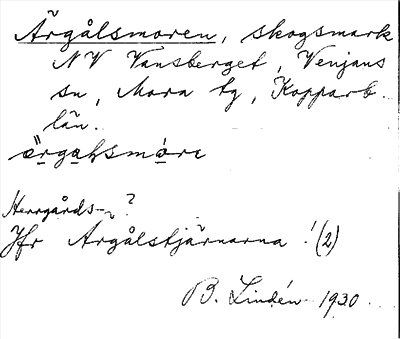 Ärgålsmoren, skogsmark
NV Vansberget, Venjans
sn, Mora tg, Kopparb.
län.
ärgaḷsmóre
Herrgårds-?
Jfr Argålstjärnarna! (2)
B. Lindén 1930